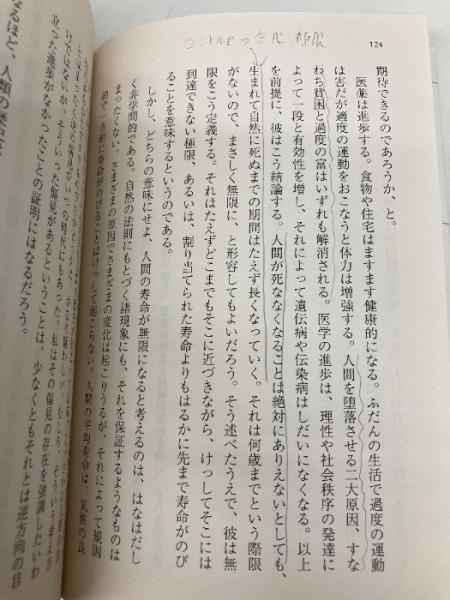 124
期待できるのであろうか、と。
医薬は進歩する。食物や住宅はますます健康的になる。ふだんの生活で過度の運動
は害だが適度の運動をおこなうと体力は増強する。人間を堕落させる二大原因、すな
わち貧困と過度の富はいずれも解消される。医学の進歩は、理性や社会秩序の発達に
よって一段と有効性を増し、それによって遺伝病や伝染病はしだいになくなる。以上
を前提に、彼はこう結論する。人間が死ななくなることは絶対にありえないとしても、
生まれて自然に死ぬまでの期間はたえず長くなっていく。それは何歳までという際限
がないので、まさしく無限に、と形容してもよいだろう。そう述べたうえで、彼は無
限をこう定義する。それはたえずどこまでもそこに近づきながら、けっしてそこには
到達できない極限、あるいは、割り当てられた寿命よりもはるかに先まで寿命がのび
ることを意味するというのである。
しかし、どちらの意味にせよ、人間の寿命が無限になると考えるのは、はなはだし
く非学問的である。自然の法則にもとづく諸現象にも、それを保証するようなものは
まったくない。さまざまの原因でさまざまの変化は起こりうるが、それによって規則
的で一方的に寿命がのびることはけっして起こらない。人間の平均寿命は、気候の良
けではないが、そういった偏見があるということは、少なくともそれとは逆方向の目
立った進歩がなかったことの証明にはなるだろう。
なるほど、人類の歴史